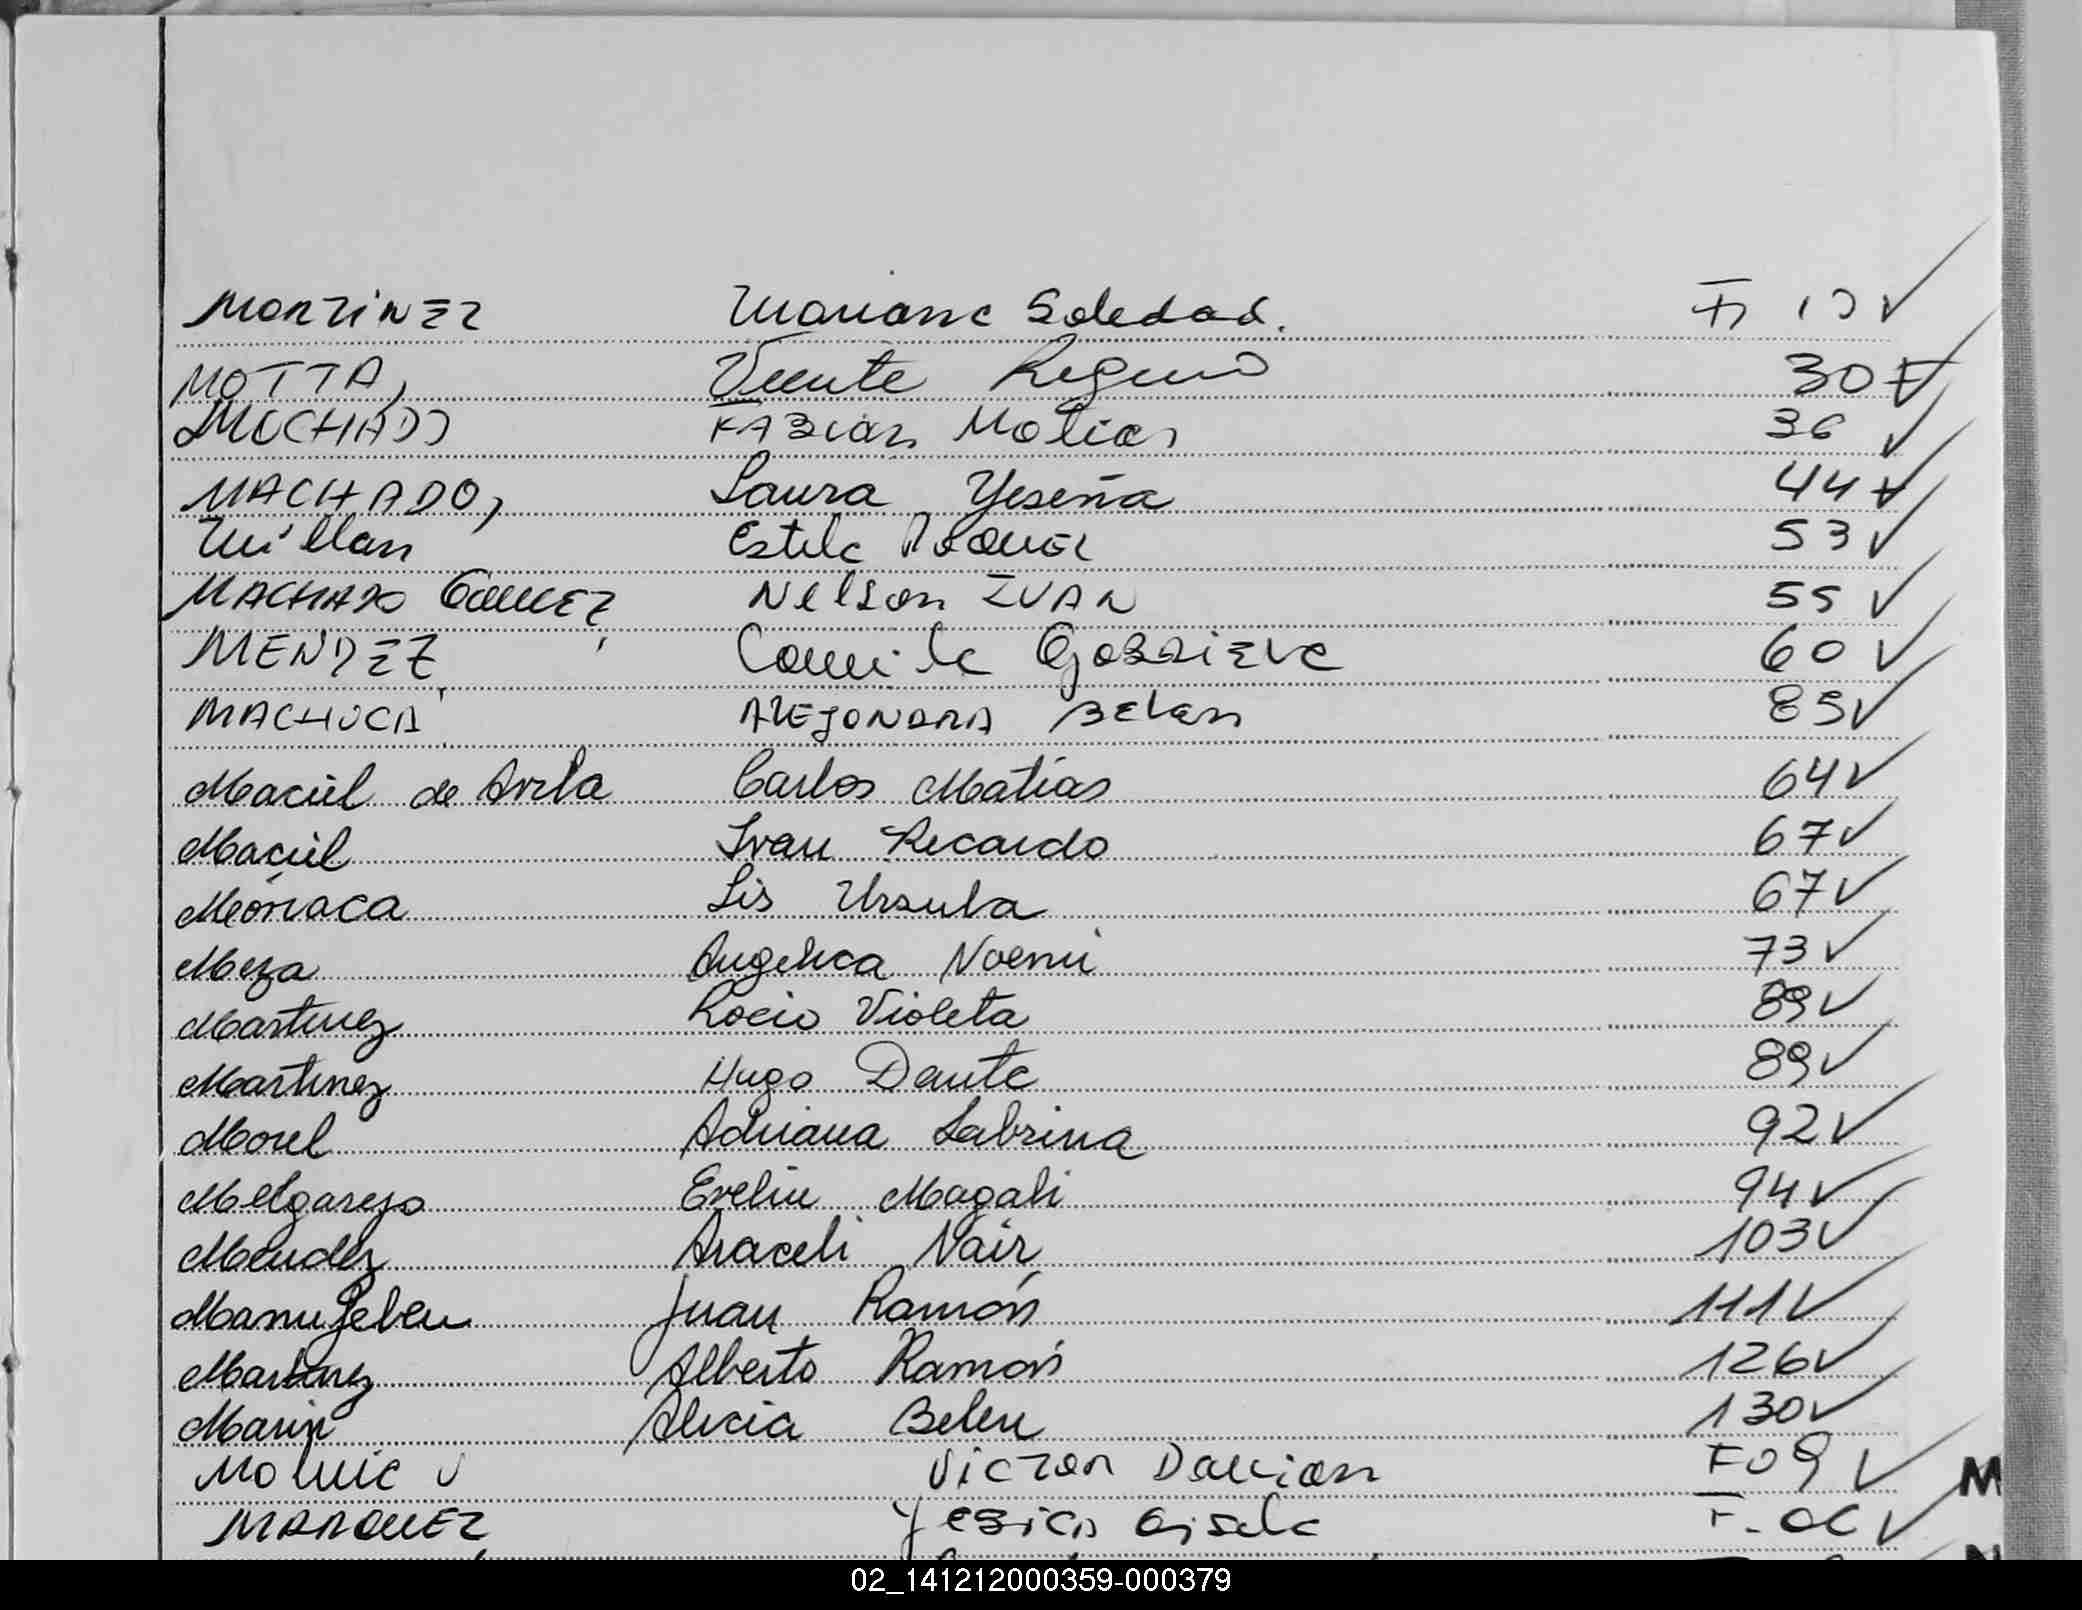 MARTINEZ Mariana Soledad. Fº 10 ✓
MOTTA, Vicente Regino 30 F ✓
MACHADO FABIAN Matias 36 ✓
MACHADO, Laura Yeseña 44 ✓
Millan Estela RAQUEL 53 ✓
MACHADO GOMEZ, Nelson IVAN 55 ✓
MENDEZ, Camila GABRIELA 60 ✓
MACHUCA ALEJANDRA BELen 85 ✓
Maciel de Avila Carlos Matias 64 ✓
Maciel Ivan Ricardo 67 ✓
Meónaca Lis Ursula 67 ✓
Meza Angelica Noemi 73 ✓
Martinez Rocio Violeta 89 ✓
Martinez Hugo Dante 89 ✓
Morel Adriana Sabrina 92 ✓
Melgarejo Evelin Magali 94 ✓
Mendez Araceli Nair 103 ✓
Juan Ramón 111 ✓
Martinez Alberto Ramón 126 ✓
Marin Alicia Belen 130 ✓
Victor Damian F 09 ✓
M
MARQUEZ Yesica Gisela F. 06 ✓
02_141212000359-000379